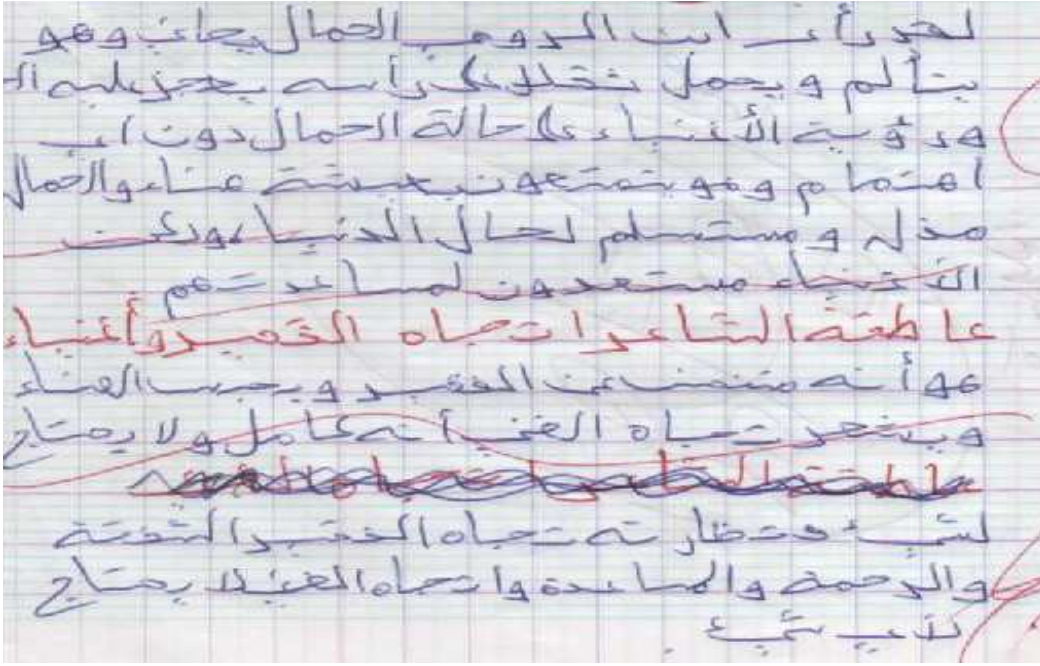 لقد رأى ابن الرومي الحمال يعاني وهو
يتألم ويحمل ثقلا على رأسه يعجز عليه
ورؤية الأغنياء على حالة الحمال دون اي
اهتمام وهو يتمتعون بعيشة هناء والحمال
مذل ومستسلم لحال الدنيا
الأغنياء مستعدون لمساعدتهم
عاطفة الشاعر اتجاه الفقير وأغنياء
هو أنه الفقير ويحب
ويشعر تجاه الغني أنه كامل ولا يحتاج
لشيء تجاه الفقير الشفقة
والرحمة والمساعدة واتجاه الغني لا يحتاج
لأي شيء .